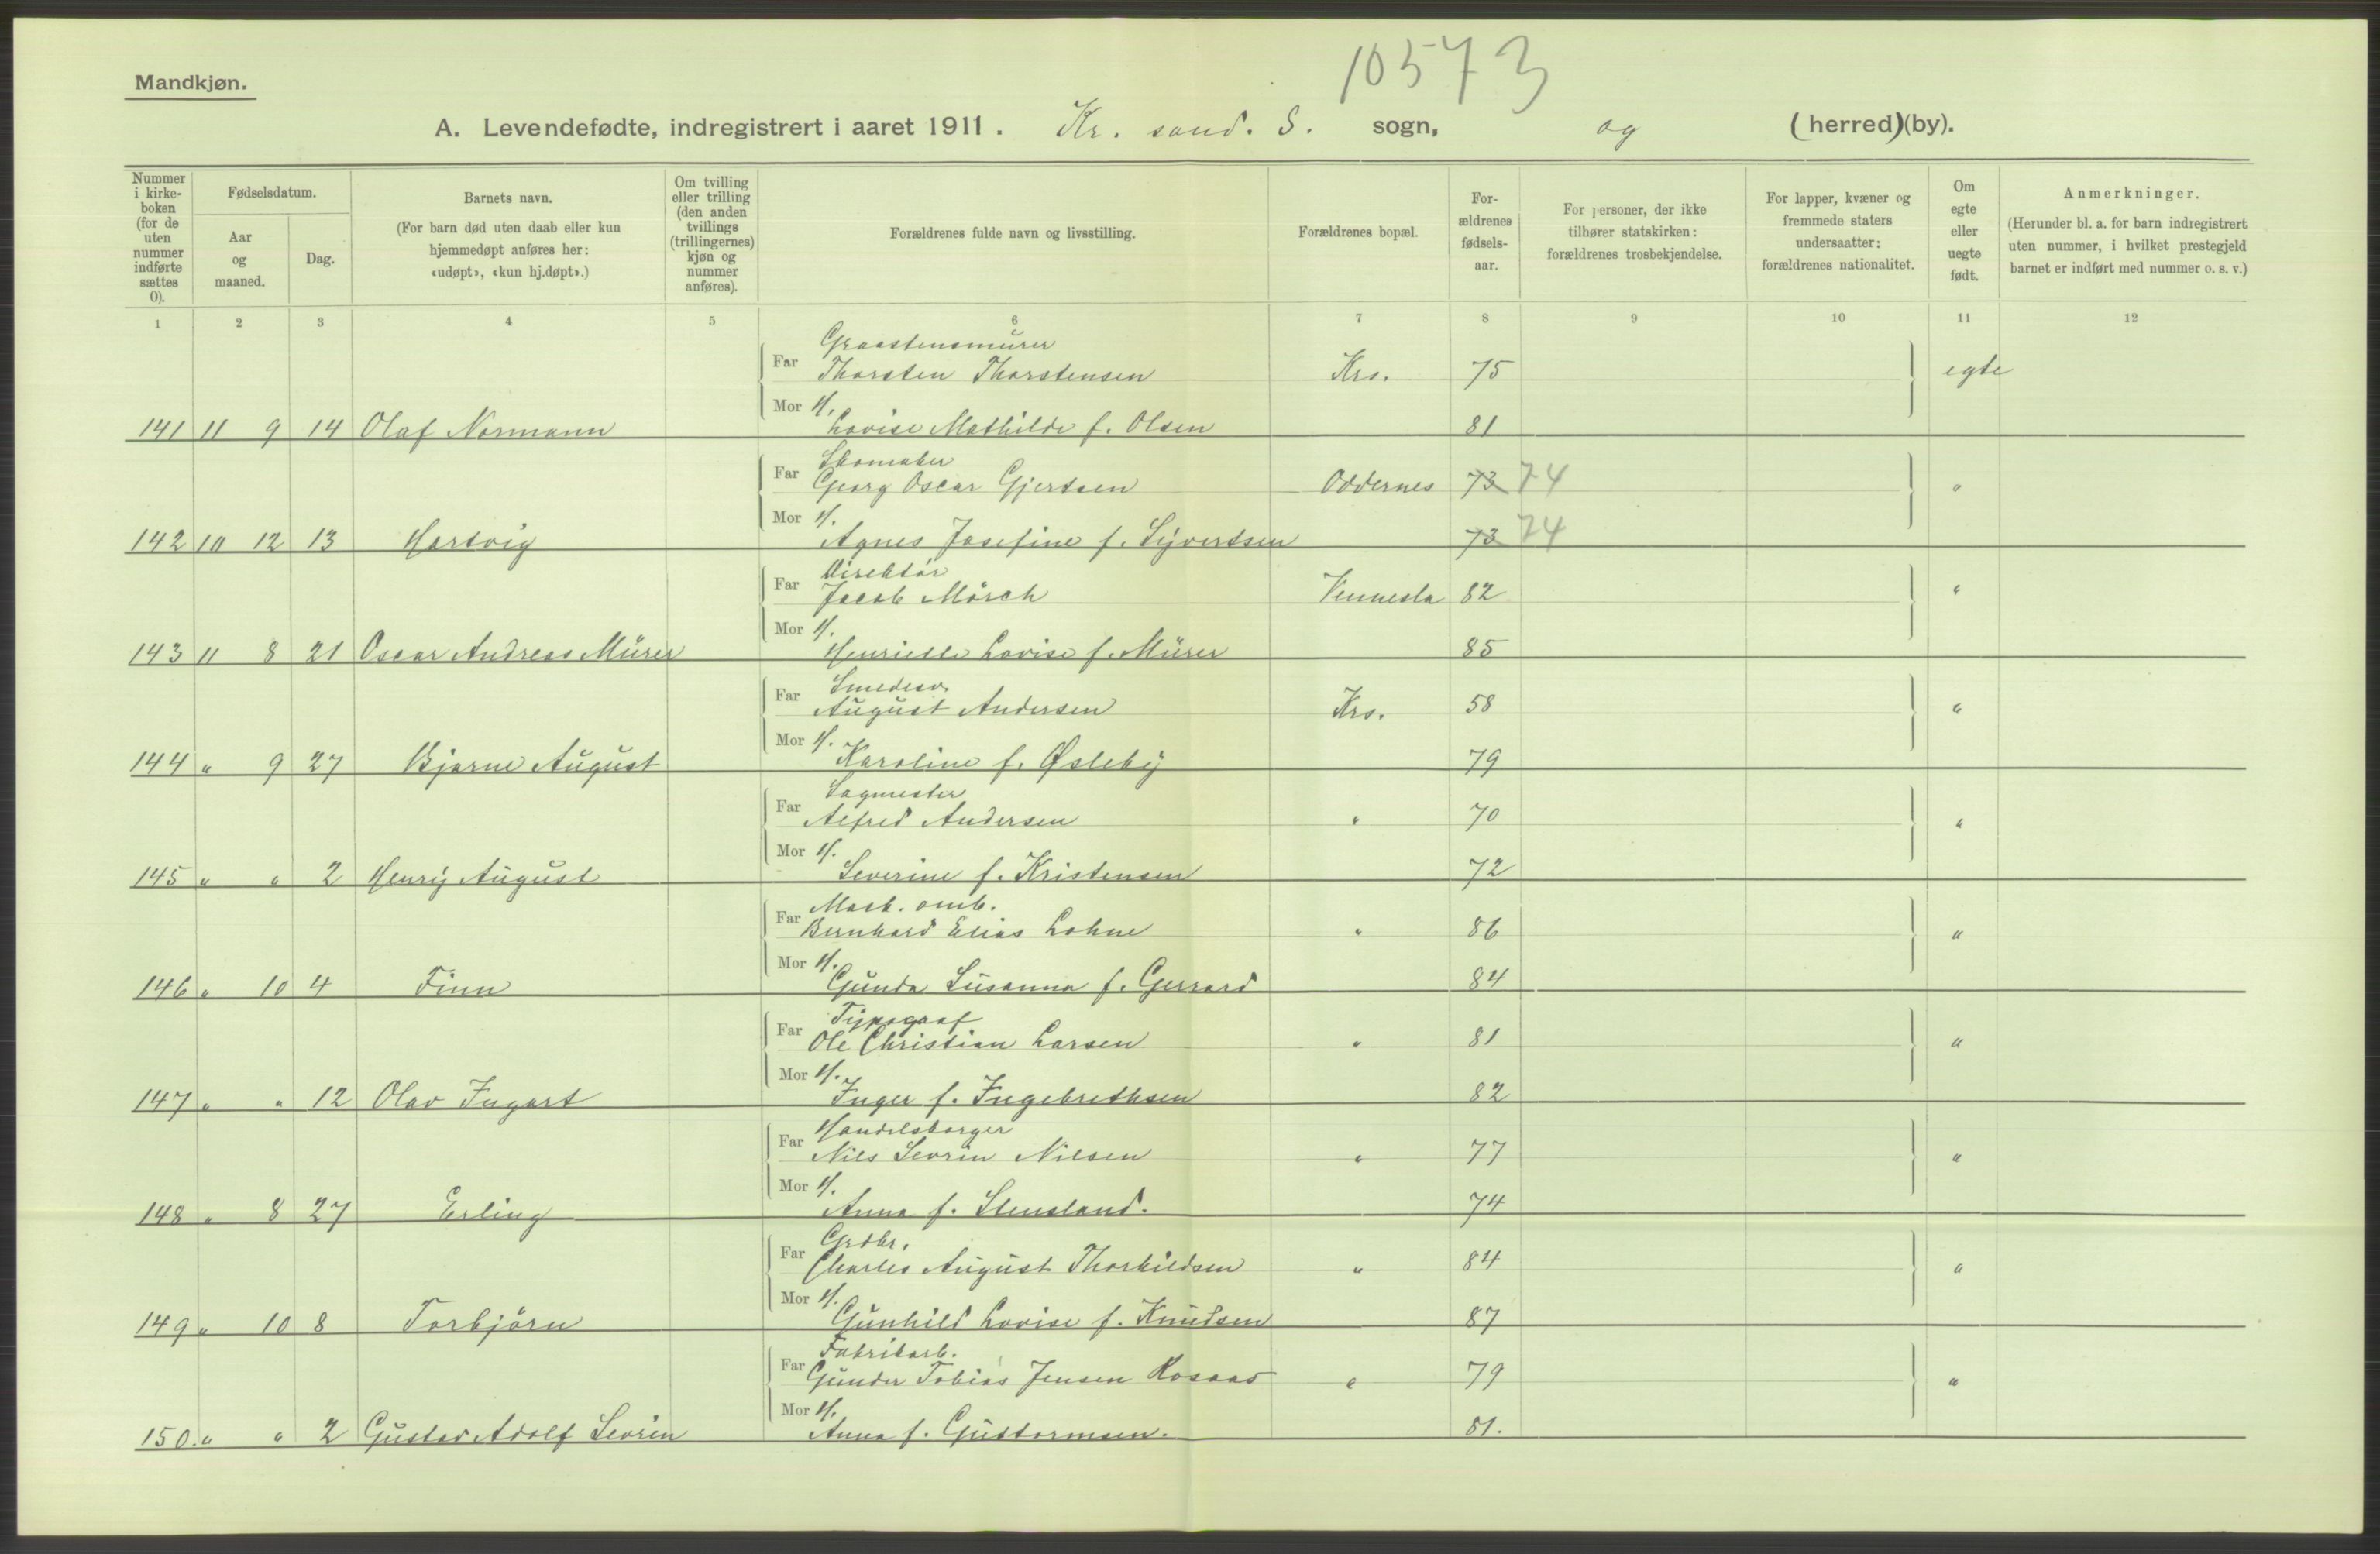 10573
Mandkjøn.
A. Levendefødte, indregistrert i aaret 1911. Kr. sand. S. sogn, og (herred)(by).
Nummer i kirke-boken (for de uten nummer indførte sættes 0).
Fødselsdatum.
Aar og maaned.
Dag.
Barnets navn.
(For barn død uten daab eller kun hjemmedøpt anføres her: «udøpt», «kun hj.døpt».)
Om tvilling eller trilling (den anden tvillings (trillingernes) kjøn og nummer anføres).
Forældrenes fulde navn og livsstilling.
Forældrenes bopæl.
For-ældrenes fødsels-aar.
For personer, der ikke tilhører statskirken: forældrenes trosbekjendelse.
For lapper, kvæner og fremmede staters undersaatter: forældrenes nationalitet.
Om egte eller uegte født.
Anmerkninger.
(Herunder bl. a. for barn indregistrert uten nummer, i hvilket prestegjeld barnet er indført med nummer o. s. v.)
1 2 3 4 5 6 7 8 9 10 11 12
Graastensmurer
Far Thorsten Thorstensen Krs. 75 egte
Mor H.
141 11 9 14 Olaf Normann Lovise Mathilde f. Olsen 81
Skomaker
Far Georg Oscar Gjertsen Oddernes 73 74 "
Mor H.
142 10 12 13 Hartvig Agnes Josefine f. Syvertsen 73 74
Direktör
Far Jacob Mörch Vennesla 82 "
Mor H.
143 11 8 21 Oscar Andreas Mürer Henriette Lovise f. Mürer 85
Smedesv.
Far August Andersen Krs. 58 "
Mor H.
144 " 9 27 Bjarne August Karoline f. Østeby 79
Sagmester
Far Alfred Andersen " 70 "
Mor H.
145 " " 2 Henry August Severine f. Kristensen 72
Mask. omb.
Far Bernhard Elias Lohne " 86 "
Mor H.
146 " 10 4 Finn Gunda Susanna f. Gerrard 84
Typograf
Far Ole Christian Larsen " 81 "
Mor H.
147 " " 12 Olav Ingart Inger f. Ingebrethsen 82
Handelsborger
Far Nils Sevrin Nilsen " 77 "
Mor H.
148 " 8 27 Erling Anna f. Stensland. 74
Grdbr.
Far Charles August Thorkildsen " 84 "
Mor H.
149 " 10 8 Torbjörn Gunhild Lovise f. Knudsen 87
Fabrikarb.
Far Gunder Tobias Jensen Rosaas " 79 "
Mor H.
150. " " 2 Gustav Adolf Sevrin Anna f. Guttormsen. 81.